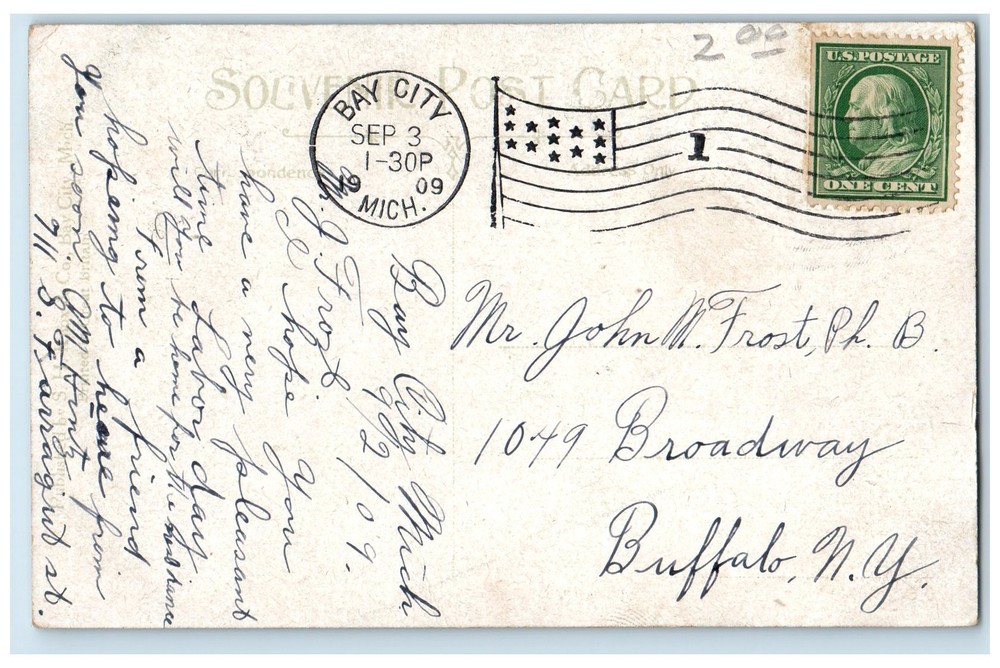 2 00
SOUVENIR POST CARD
U.S. POSTAGE
ONE CENT
BAY CITY
SEP 3
1-30P
09
MICH.
1
Address Only
Mr. John W. Frost, Ph. B.
1049 Broadway
Buffalo, N.Y.
Bay City Mich
9/2/09.
Mr. J. Frost
I hope you
have a very pleasant
time Labor day
will you be home for the
From a friend
hopeing to heare from
you soon. M. Hintz
711 S. Farragut st.